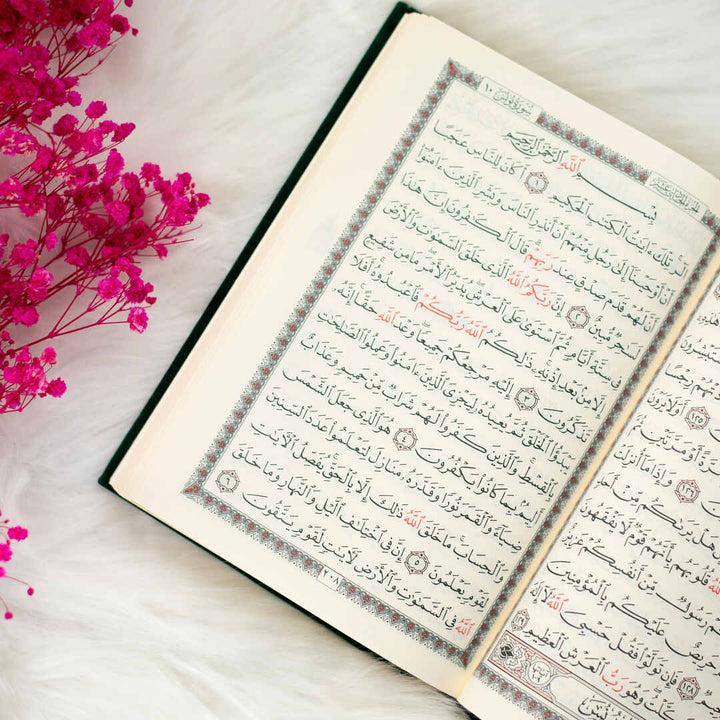 رِجْسًا
١٢٥ أَوَلَا يَرَوْنَ
١٢٦ وَإِذَا مَآ أُنزِلَتْ
قُلُوبَهُم بِأَنَّهُمْ قَوْمٌ لَّا يَفْقَهُونَ
رَسُولٌ مِّنْ أَنفُسِكُمْ عَزِيزٌ
حَرِيصٌ عَلَيْكُم بِٱلْمُؤْمِنِينَ
١٢٨ فَإِن تَوَلَّوْا۟ فَقُلْ حَسْبِىَ ٱللَّهُ لَآ إِلَٰهَ
وَهُوَ رَبُّ ٱلْعَرْشِ ٱلْعَظِيمِ ١٢٩
سُورَةُ يُونُسَ ١٠
بِسْمِ ٱللَّهِ ٱلرَّحْمَٰنِ ٱلرَّحِيمِ
الٓر تِلْكَ ءَايَٰتُ ٱلْكِتَٰبِ ٱلْحَكِيمِ ١ أَكَانَ لِلنَّاسِ عَجَبًا
أَنْ أَوْحَيْنَآ إِلَىٰ رَجُلٍ مِّنْهُمْ أَنْ أَنذِرِ ٱلنَّاسَ وَبَشِّرِ ٱلَّذِينَ ءَامَنُوٓا۟
أَنَّ لَهُمْ قَدَمَ صِدْقٍ عِندَ رَبِّهِمْ ۗ قَالَ ٱلْكَٰفِرُونَ إِنَّ هَٰذَا
لَسَٰحِرٌ مُّبِينٌ ٢ إِنَّ رَبَّكُمُ ٱللَّهُ ٱلَّذِى خَلَقَ ٱلسَّمَٰوَٰتِ وَٱلْأَرْضَ
فِى سِتَّةِ أَيَّامٍ ثُمَّ ٱسْتَوَىٰ عَلَى ٱلْعَرْشِ ۖ يُدَبِّرُ ٱلْأَمْرَ ۖ مَا مِن شَفِيعٍ
إِلَّا مِنۢ بَعْدِ إِذْنِهِۦ ۚ ذَٰلِكُمُ ٱللَّهُ رَبُّكُمْ فَٱعْبُدُوهُ ۚ أَفَلَا
تَذَكَّرُونَ ٣ إِلَيْهِ مَرْجِعُكُمْ جَمِيعًا ۖ وَعْدَ ٱللَّهِ حَقًّا ۚ إِنَّهُۥ
يَبْدَؤُا۟ ٱلْخَلْقَ ثُمَّ يُعِيدُهُۥ لِيَجْزِىَ ٱلَّذِينَ ءَامَنُوا۟ وَعَمِلُوا۟ ٱلصَّٰلِحَٰتِ
بِٱلْقِسْطِ ۚ وَٱلَّذِينَ كَفَرُوا۟ لَهُمْ شَرَابٌ مِّنْ حَمِيمٍ وَعَذَابٌ
أَلِيمٌۢ بِمَا كَانُوا۟ يَكْفُرُونَ ٤ هُوَ ٱلَّذِى جَعَلَ ٱلشَّمْسَ
ضِيَآءً وَٱلْقَمَرَ نُورًا وَقَدَّرَهُۥ مَنَازِلَ لِتَعْلَمُوا۟ عَدَدَ ٱلسِّنِينَ
وَٱلْحِسَابَ ۚ مَا خَلَقَ ٱللَّهُ ذَٰلِكَ إِلَّا بِٱلْحَقِّ ۚ يُفَصِّلُ ٱلْءَايَٰتِ
لِقَوْمٍ يَعْلَمُونَ ٥ إِنَّ فِى ٱخْتِلَٰفِ ٱلَّيْلِ وَٱلنَّهَارِ وَمَا خَلَقَ
ٱللَّهُ فِى ٱلسَّمَٰوَٰتِ وَٱلْأَرْضِ لَءَايَٰتٍ لِّقَوْمٍ يَتَّقُونَ ٦
٢٠٨